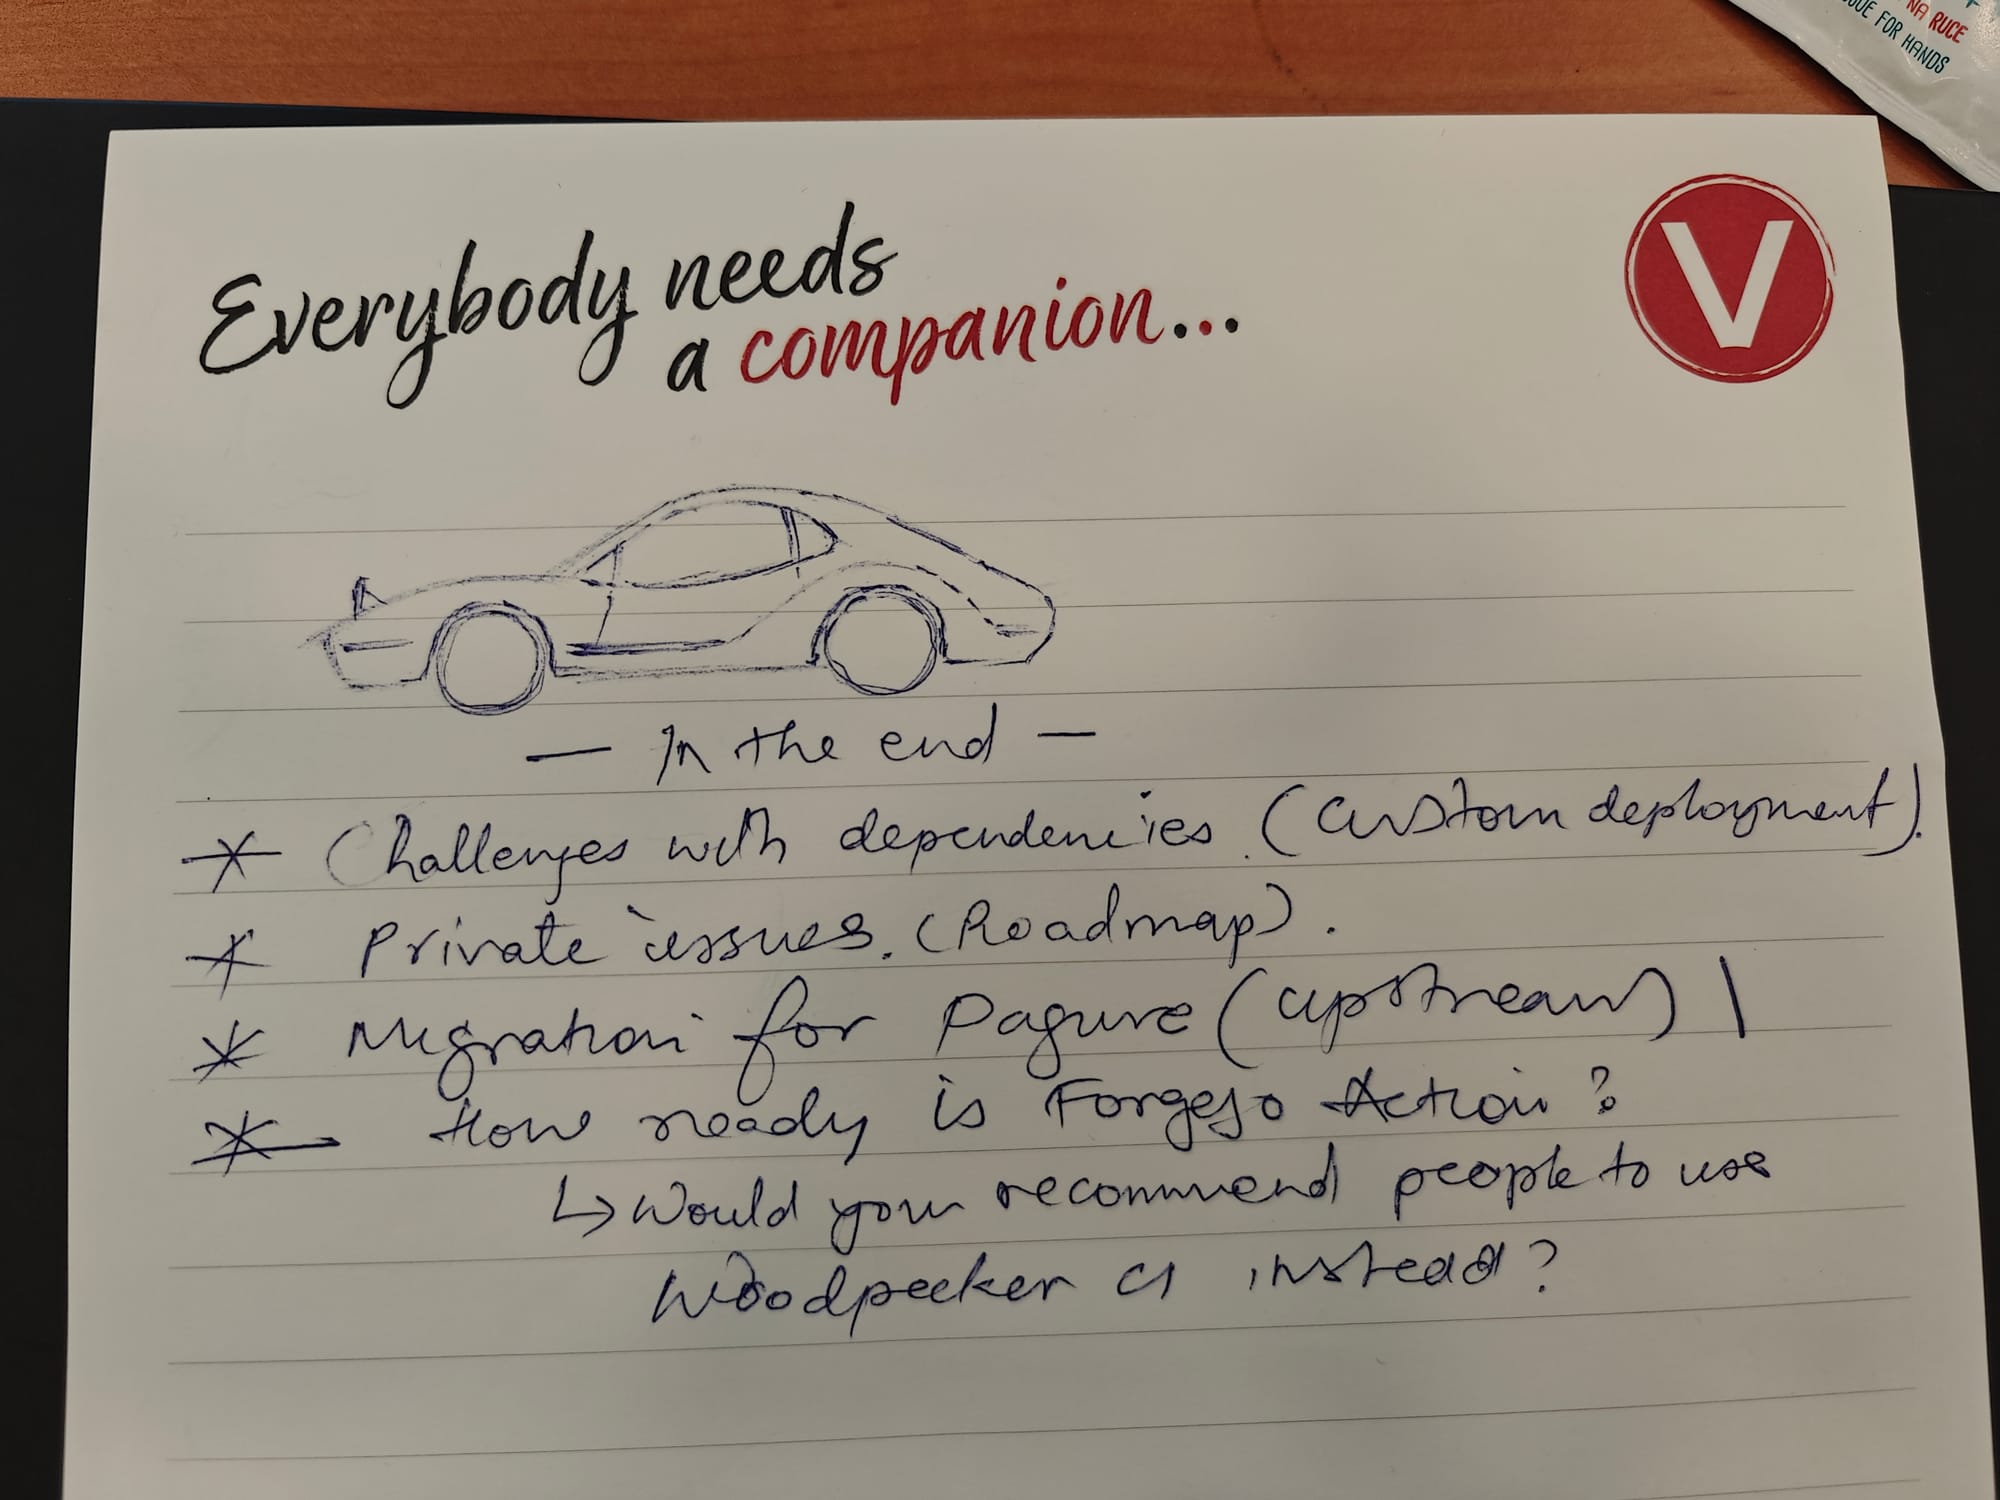 NA RUCE
UE FOR HANDS
Everybody needs
a companion...
V
— In the end —
* Challenges with dependencies. (Custom deployment).
* Private issues. (Roadmap).
* Migration for Pagure (upstream) |
* How ready is Forgejo Action?
↳ Would you recommend people to use
Woodpecker CI instead?